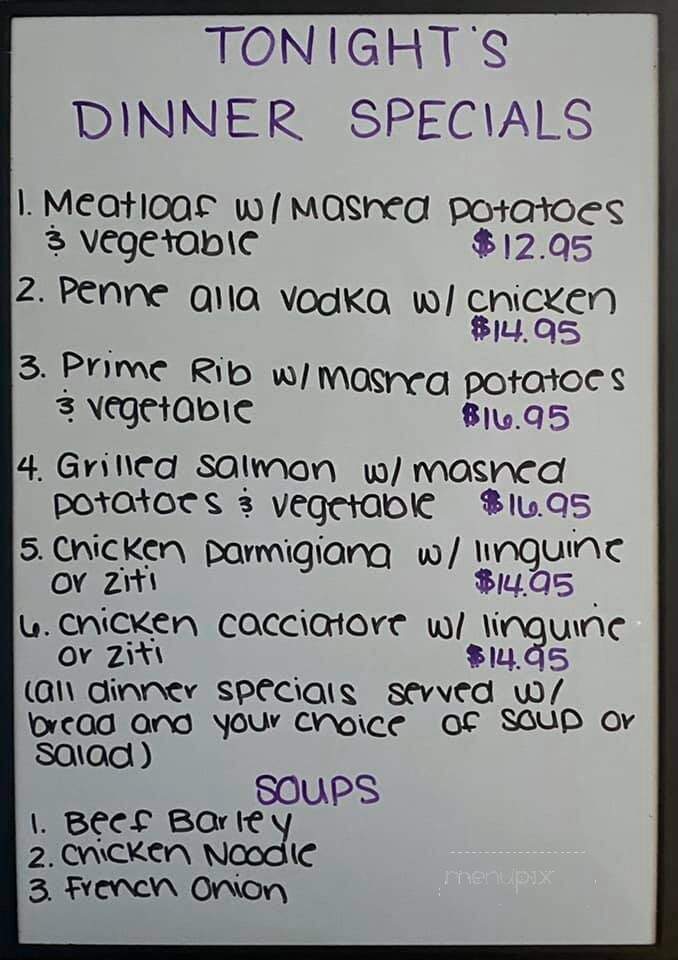 TONIGHT'S
DINNER SPECIALS
1. Meatloaf w/ Mashed potatoes
& vegetable $12.95
2. Penne alla vodka w/ chicken
$14.95
3. Prime Rib w/ mashed potatoes
& vegetable $16.95
4. Grilled salmon w/ mashed
potatoes & vegetable $16.95
5. Chicken parmigiana w/ linguine
or ziti $14.95
6. Chicken cacciatore w/ linguine
or ziti $14.95
(all dinner specials served w/
bread and your choice of soup or
salad)
SOUPS
1. Beef Barley
2. Chicken Noodle
3. French Onion
menupix